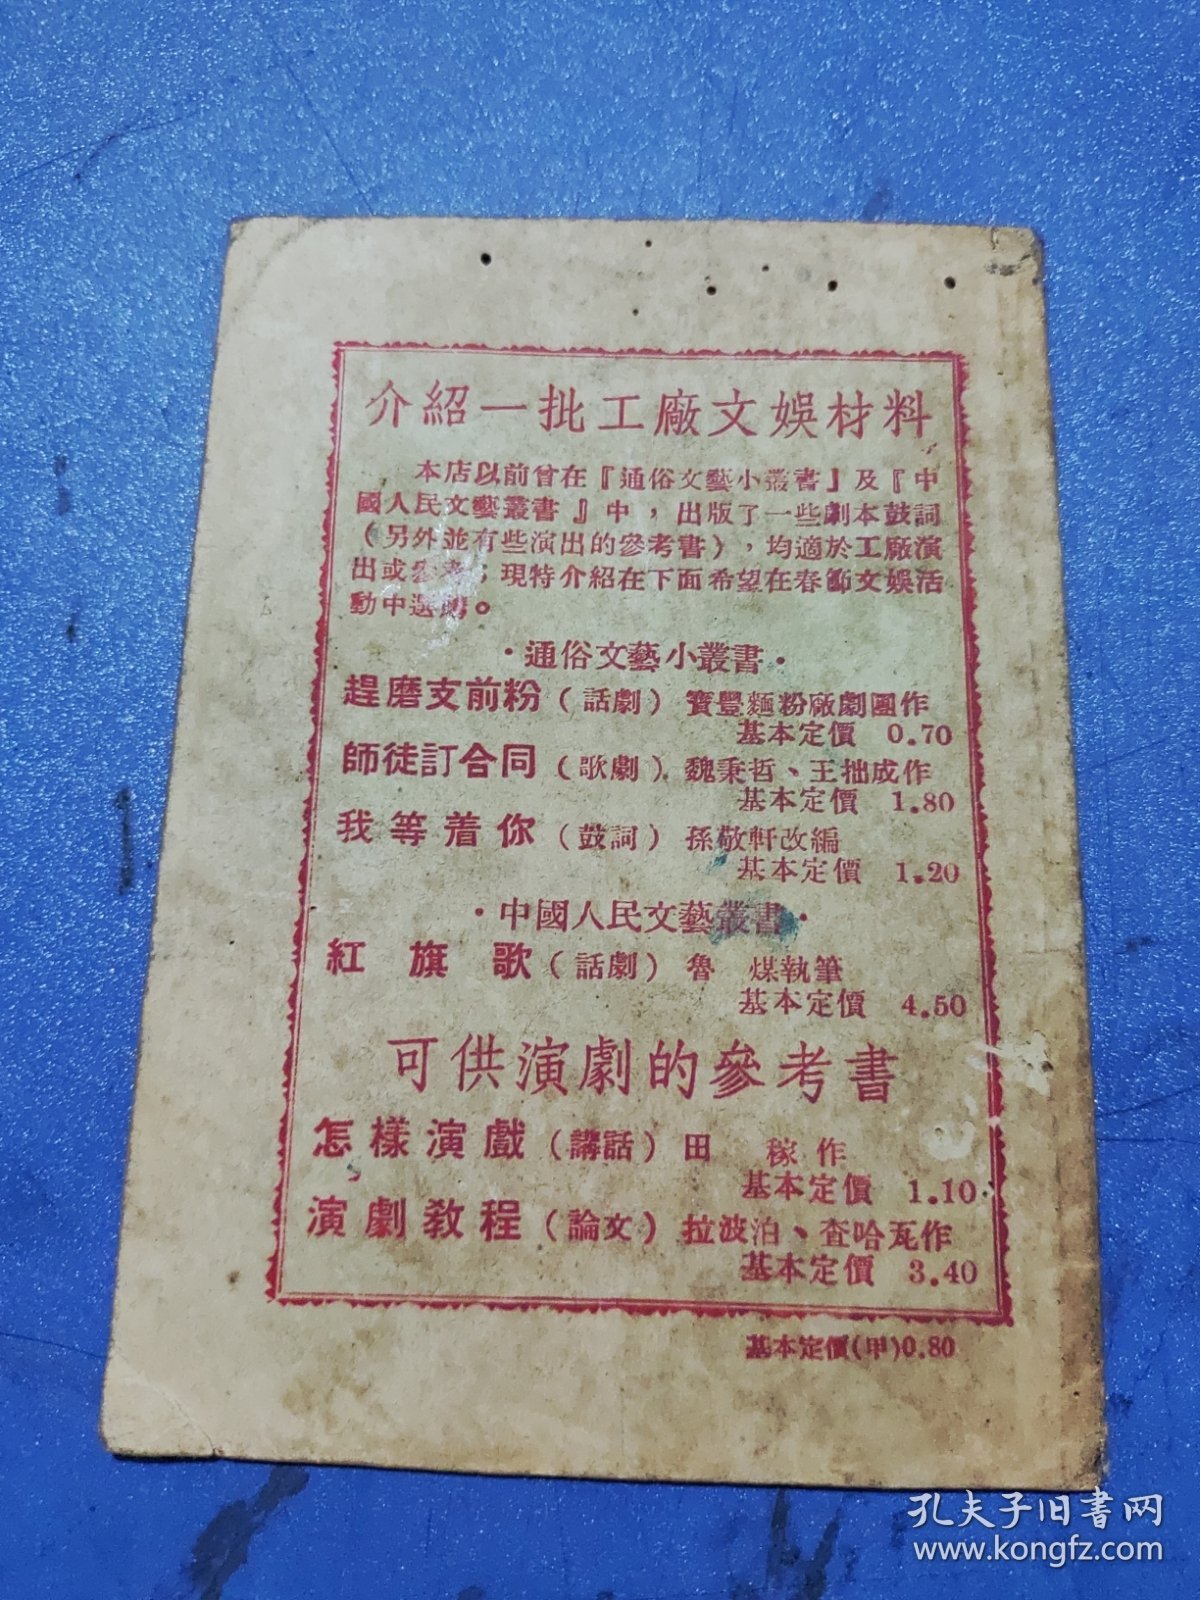 介紹一批工廠文娛材料
本店以前曾在『通俗文藝小叢書』及『中
國人民文藝叢書』中，出版了一些劇本鼓詞
（另外並有些演出的參考書），均適於工廠演
出或參考；現特介紹在下面希望在春節文娛活
動中選購。
·通俗文藝小叢書·
趕磨支前粉（話劇）寶豐麵粉廠劇團作
基本定價 0.70
師徒訂合同（歌劇）魏秉哲、王拙成作
基本定價 1.80
我等着你（鼓詞）孫敬軒改編
基本定價 1.20
·中國人民文藝叢書·
紅旗歌（話劇）魯 煤執筆
基本定價 4.50
可供演劇的參考書
怎樣演戲（講話）田 稼作
基本定價 1.10
演劇教程（論文）拉波泊、查哈瓦作
基本定價 3.40
基本定價(甲)0.80
孔夫子旧书网
www.kongfz.com